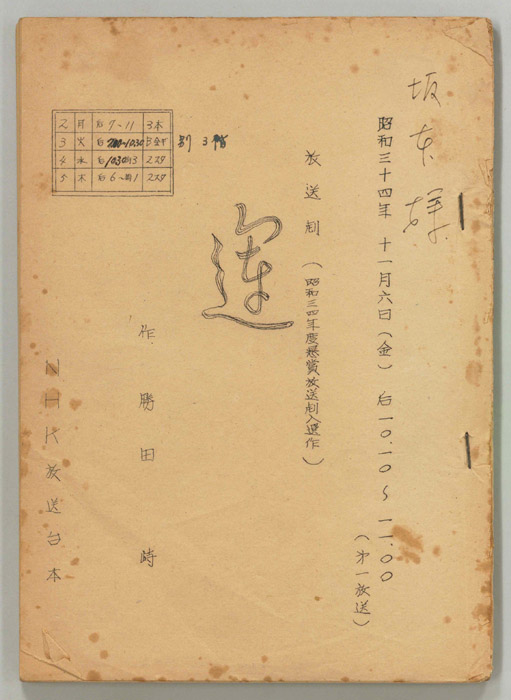 坂本様
昭和三十四年 十一月六日(金) 后一〇.一〇〜一一.〇〇
(才一放送)
放送劇(昭和三四年度懸賞放送劇入選作)
運
作 勝田 時
NHK放送台本
2 月 后7〜11 3本
3 火 后 10.30 B金下
4 水 后
5 木 后6〜 1 2スタ
別 3階